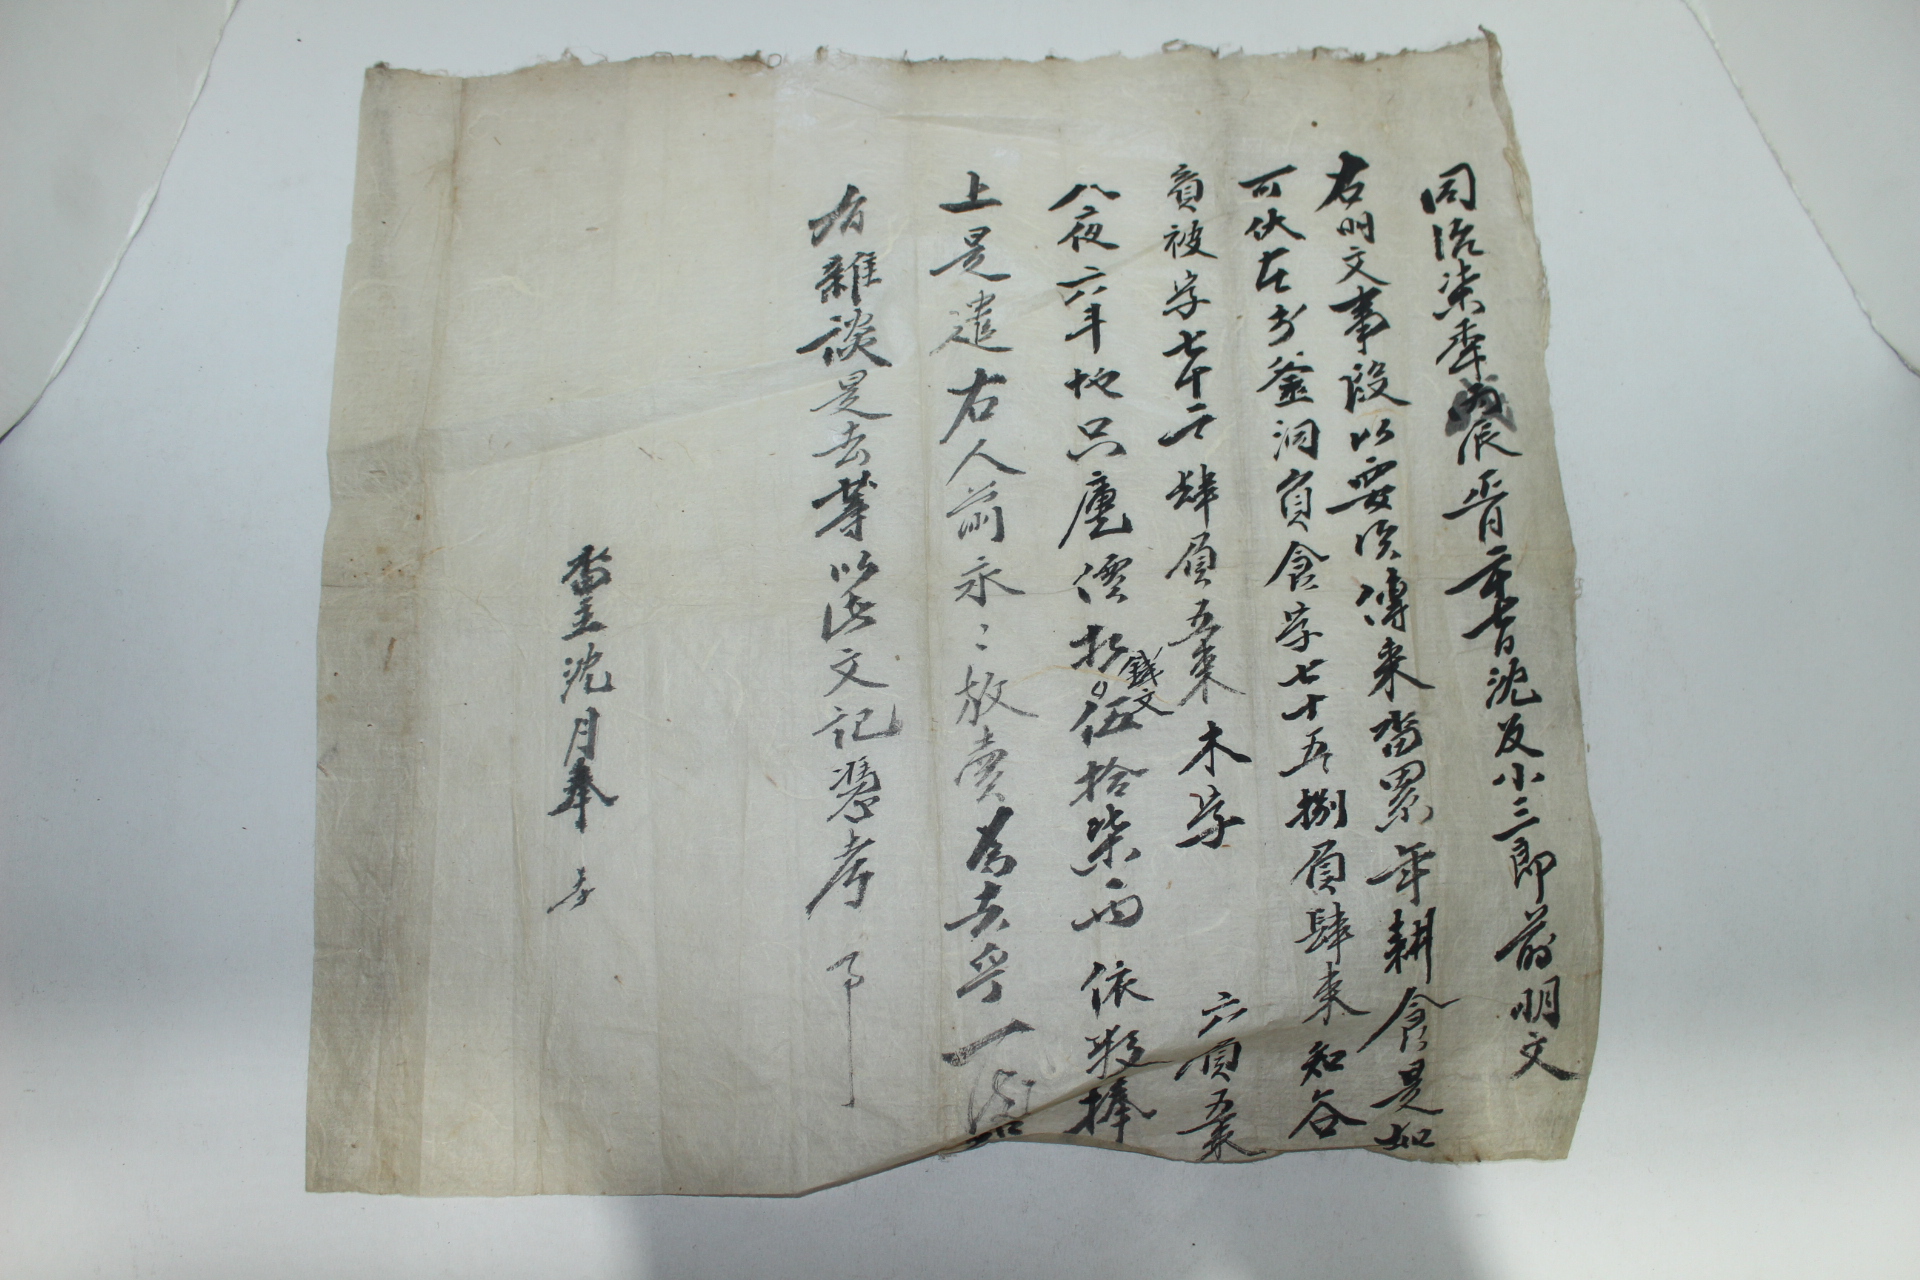 同治柒年戊辰正月二十七日沈反小三郎前明文
右明文事段以要用傳来畓累年耕食是如
可伏在於釜洞負食字七十五捌負肆束知谷
員被字七十二肆負五束木字六負五束
八夜六斗地只庫價折錢文伍拾柒兩依數捧
上是遣右人前永永放賣爲去乎一後
有雜談是去等以此文記憑考印
畓主沈月奉